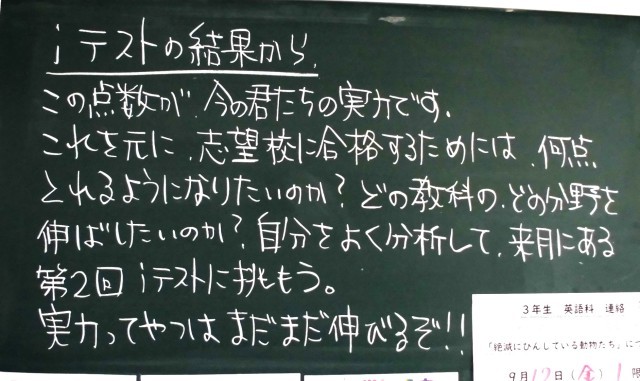 iテストの結果から、
この点数が、今の君たちの実力です。
これを元に、志望校に合格するためには、何点
とれるようになりたいのか?どの教科の、どの分野を
伸ばしたいのか?自分をよく分析して、来月にある
第2回iテストに挑もう。
実力ってやつはまだまだ伸びるぞ!!
3年生 英語科 連絡
「絶滅にひんしている動物たち」につ
9月17日(金)1限